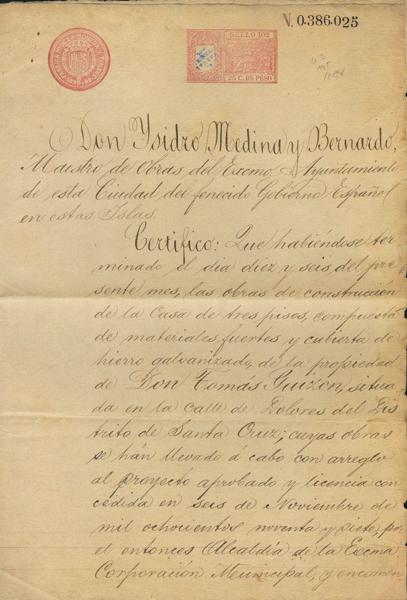 N. 0.386.025
SELLO 10º
25 C. DE PESO
Don Ysidro Medina y Bernardo,
Maestro de Obras del Excmo. Ayuntamiento
de esta Ciudad del fenecido Gobierno Español
en estas Islas.
Certifico: Que habiéndose ter
minado el dia diez y seis del pre
sente mes, las obras de construcción
de la Casa de tres pisos, compuesta
de materiales fuertes y cubierta de
hierro galvanizado, de la propiedad
de Don Tomás Guizon, situa
da en la calle de Dolores del Dis
trito de Santa Cruz; cuyas obras
se hán llevado á cabo con arreglo
al proyecto aprobado y licencia con
cedida en seis de Noviembre de
mil ochocientos noventa y siete, por
el entonces Alcaldía de la Excma
Corporación Municipal, y encomen